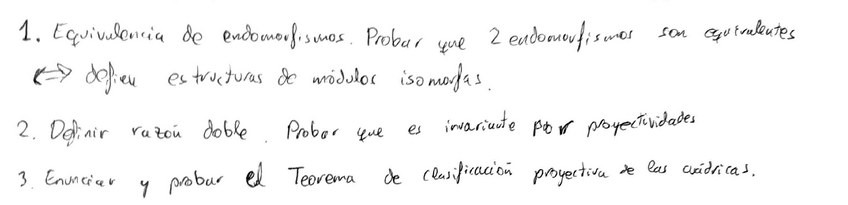 1. Equivalencia de endomorfismos. Probar que 2 endomorfismos son equivalentes
<=> definen estructuras de módulos isomorfas.
2. Definir razón doble. Probar que es invariante por proyectividades
3. Enunciar y probar el Teorema de clasificación proyectiva de las cuádricas.